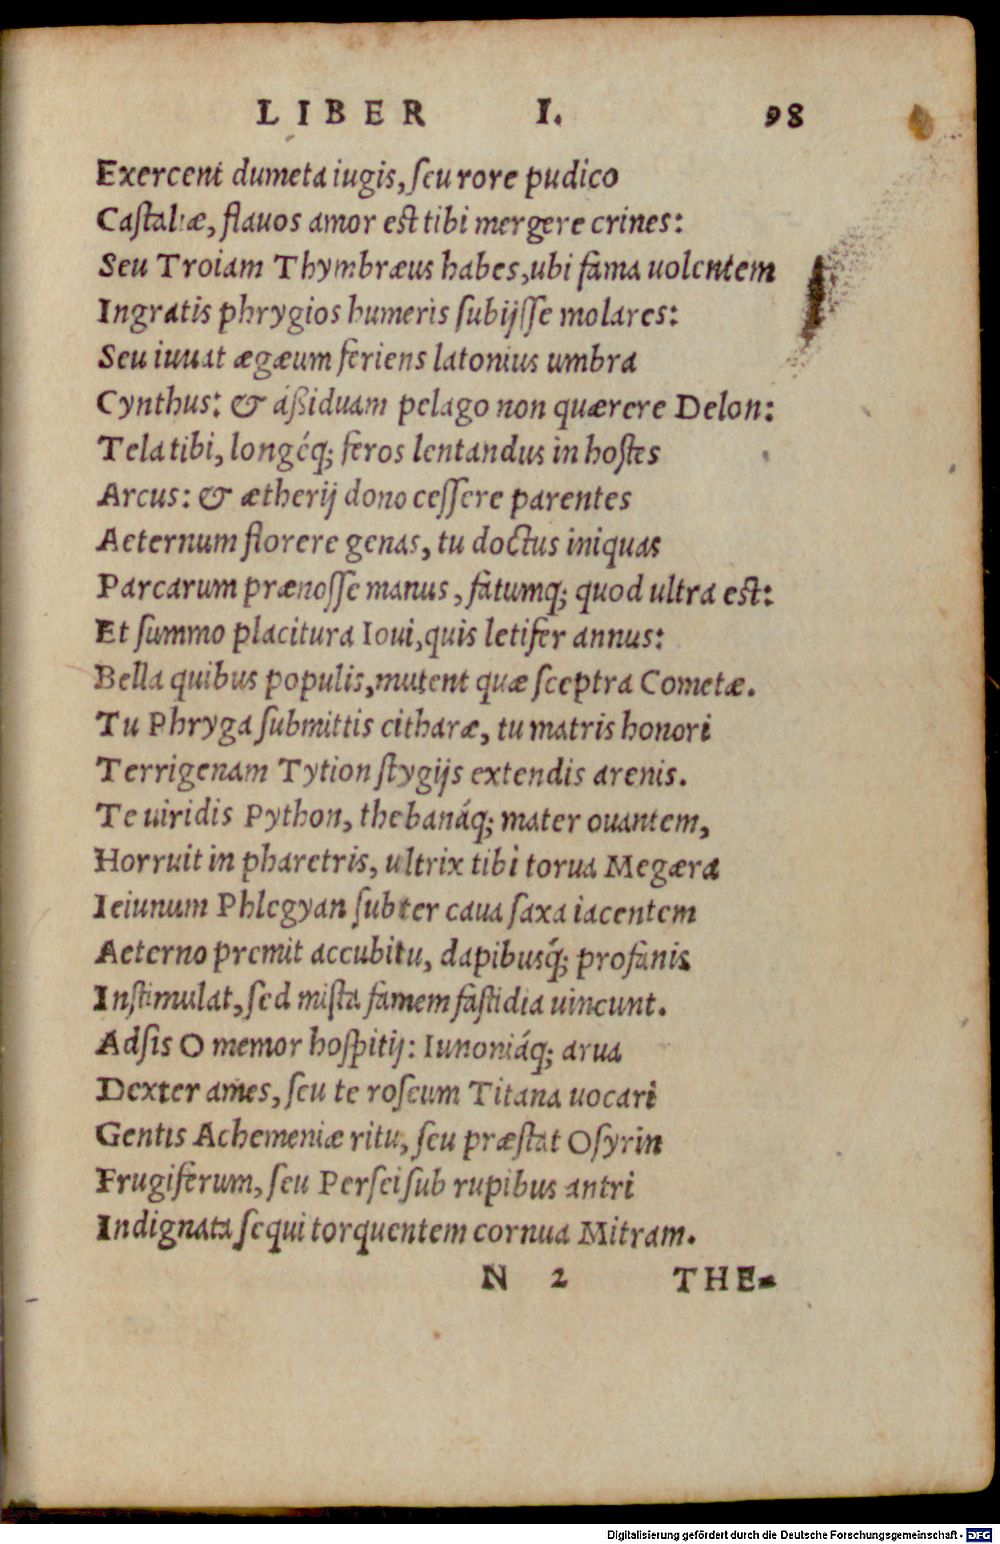 LIBER I. 98
Exercent dumeta iugis, ſeu rore pudico
Caſtaliæ, flauos amor eſt tibi mergere crines:
Seu Troiam Thymbræus habes, ubi fama uolentem
Ingratis phrygios humeris ſubijſſe molares:
Seu iuuat ægæum feriens latonius umbra
Cynthus: & áßiduam pelago non quærere Delon:
Tela tibi, longéq; feros lentandus in hoſtes
Arcus: & ætherij dono ceſſere parentes
Aeternum florere genas, tu doctus iniquas
Parcarum prænoſſe manus, fatumq; quod ultra eſt:
Et ſummo placitura Ioui, quis letifer annus:
Bella quibus populis, mutent quæ ſceptra Cometæ.
Tu Phryga ſubmittis citharæ, tu matris honori
Terrigenam Tytion ſtygijs extendis arenis.
Te uiridis Python, thebanáq; mater ouantem,
Horruit in pharetris, ultrix tibi torua Megæra
Ieiunum Phlegyan ſubter caua ſaxa iacentem
Aeterno premit accubitu, dapibusq́; profanis
Inſtimulat, ſed miſta famem faſtidia uincunt.
Adſis O memor hoſpitij: Iunoniáq; arua
Dexter ames, ſeu te roſeum Titana uocari
Gentis Achemeniæ ritu, ſeu præſtat Oſyrin
Frugiferum, ſeu Perſei ſub rupibus antri
Indignata ſequi torquentem cornua Mitram.
N 2 THE-
Digitalisierung gefördert durch die Deutsche Forschungsgemeinschaft - DFG